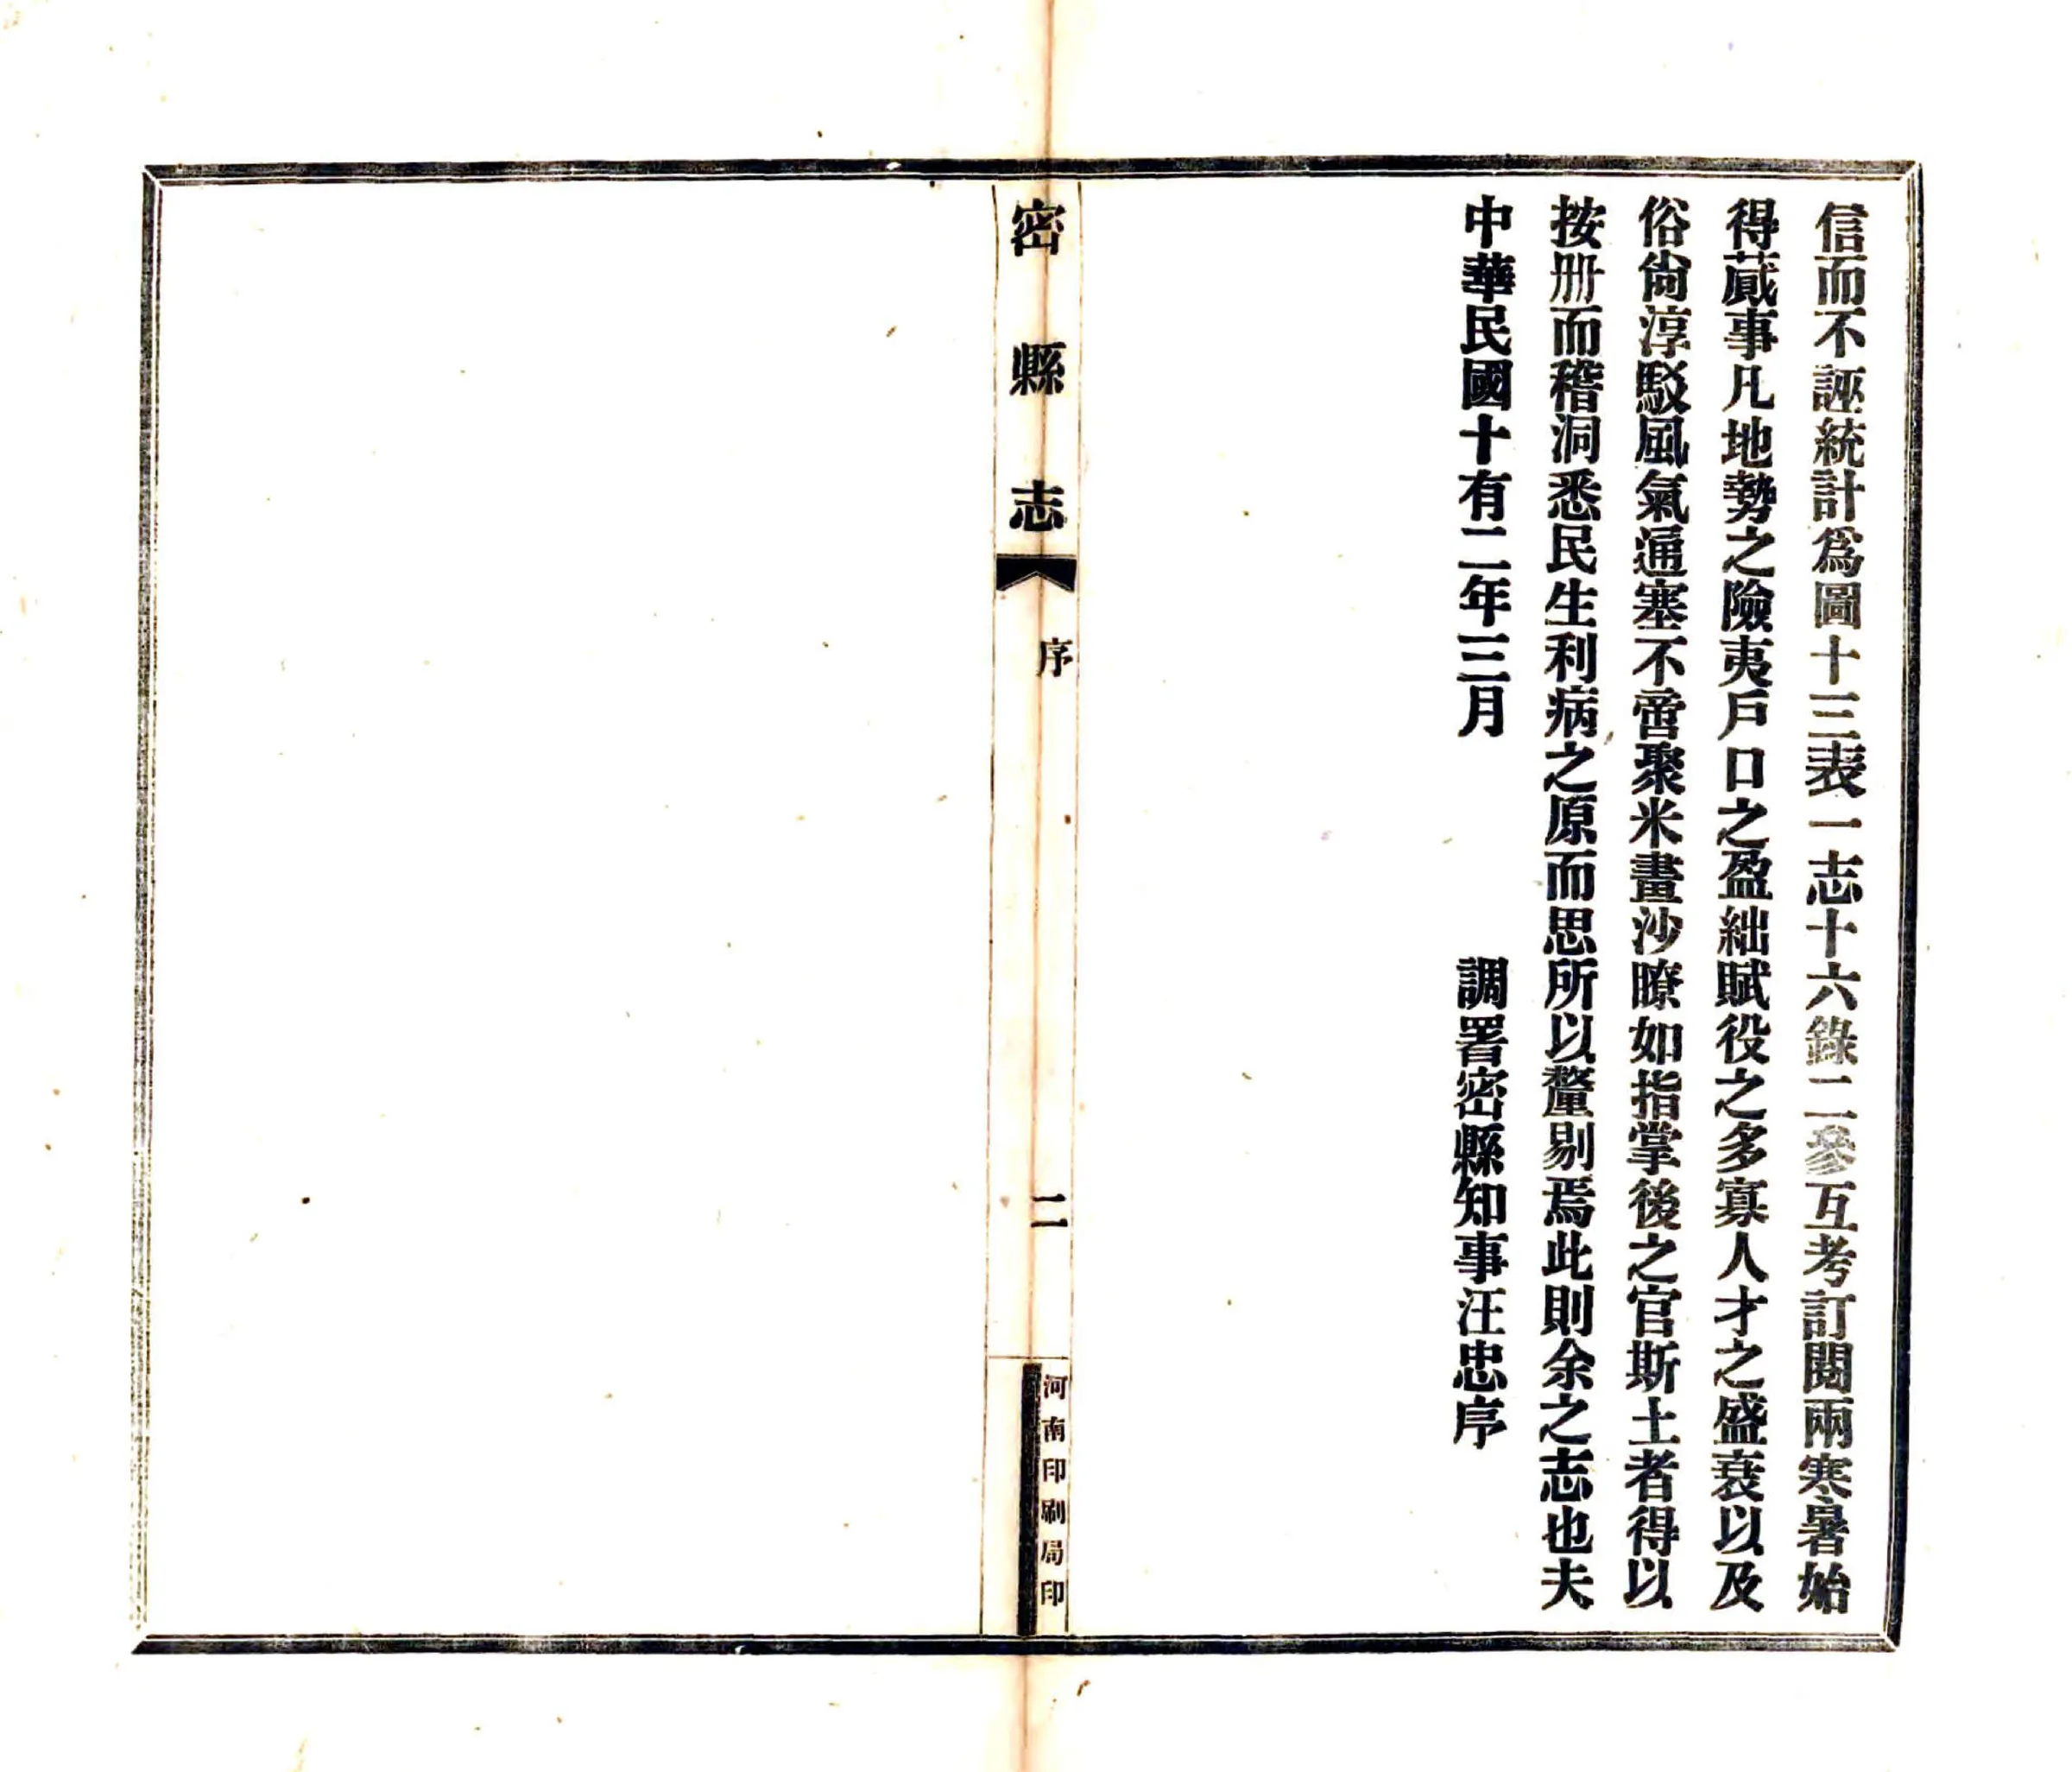 信而不誣統計爲圖十三表一志十六錄二參互考訂閱兩寒暑始
得蕆事凡地勢之險夷戶口之盈絀賦役之多寡人才之盛衰以及
俗尙淳駁風氣通塞不啻聚米畫沙瞭如指掌後之官斯土者得以
按册而稽洞悉民生利病之原而思所以釐剔焉此則余之志也夫
中華民國十有二年三月
調署密縣知事汪忠序
密縣志
序
二
河南印刷局印